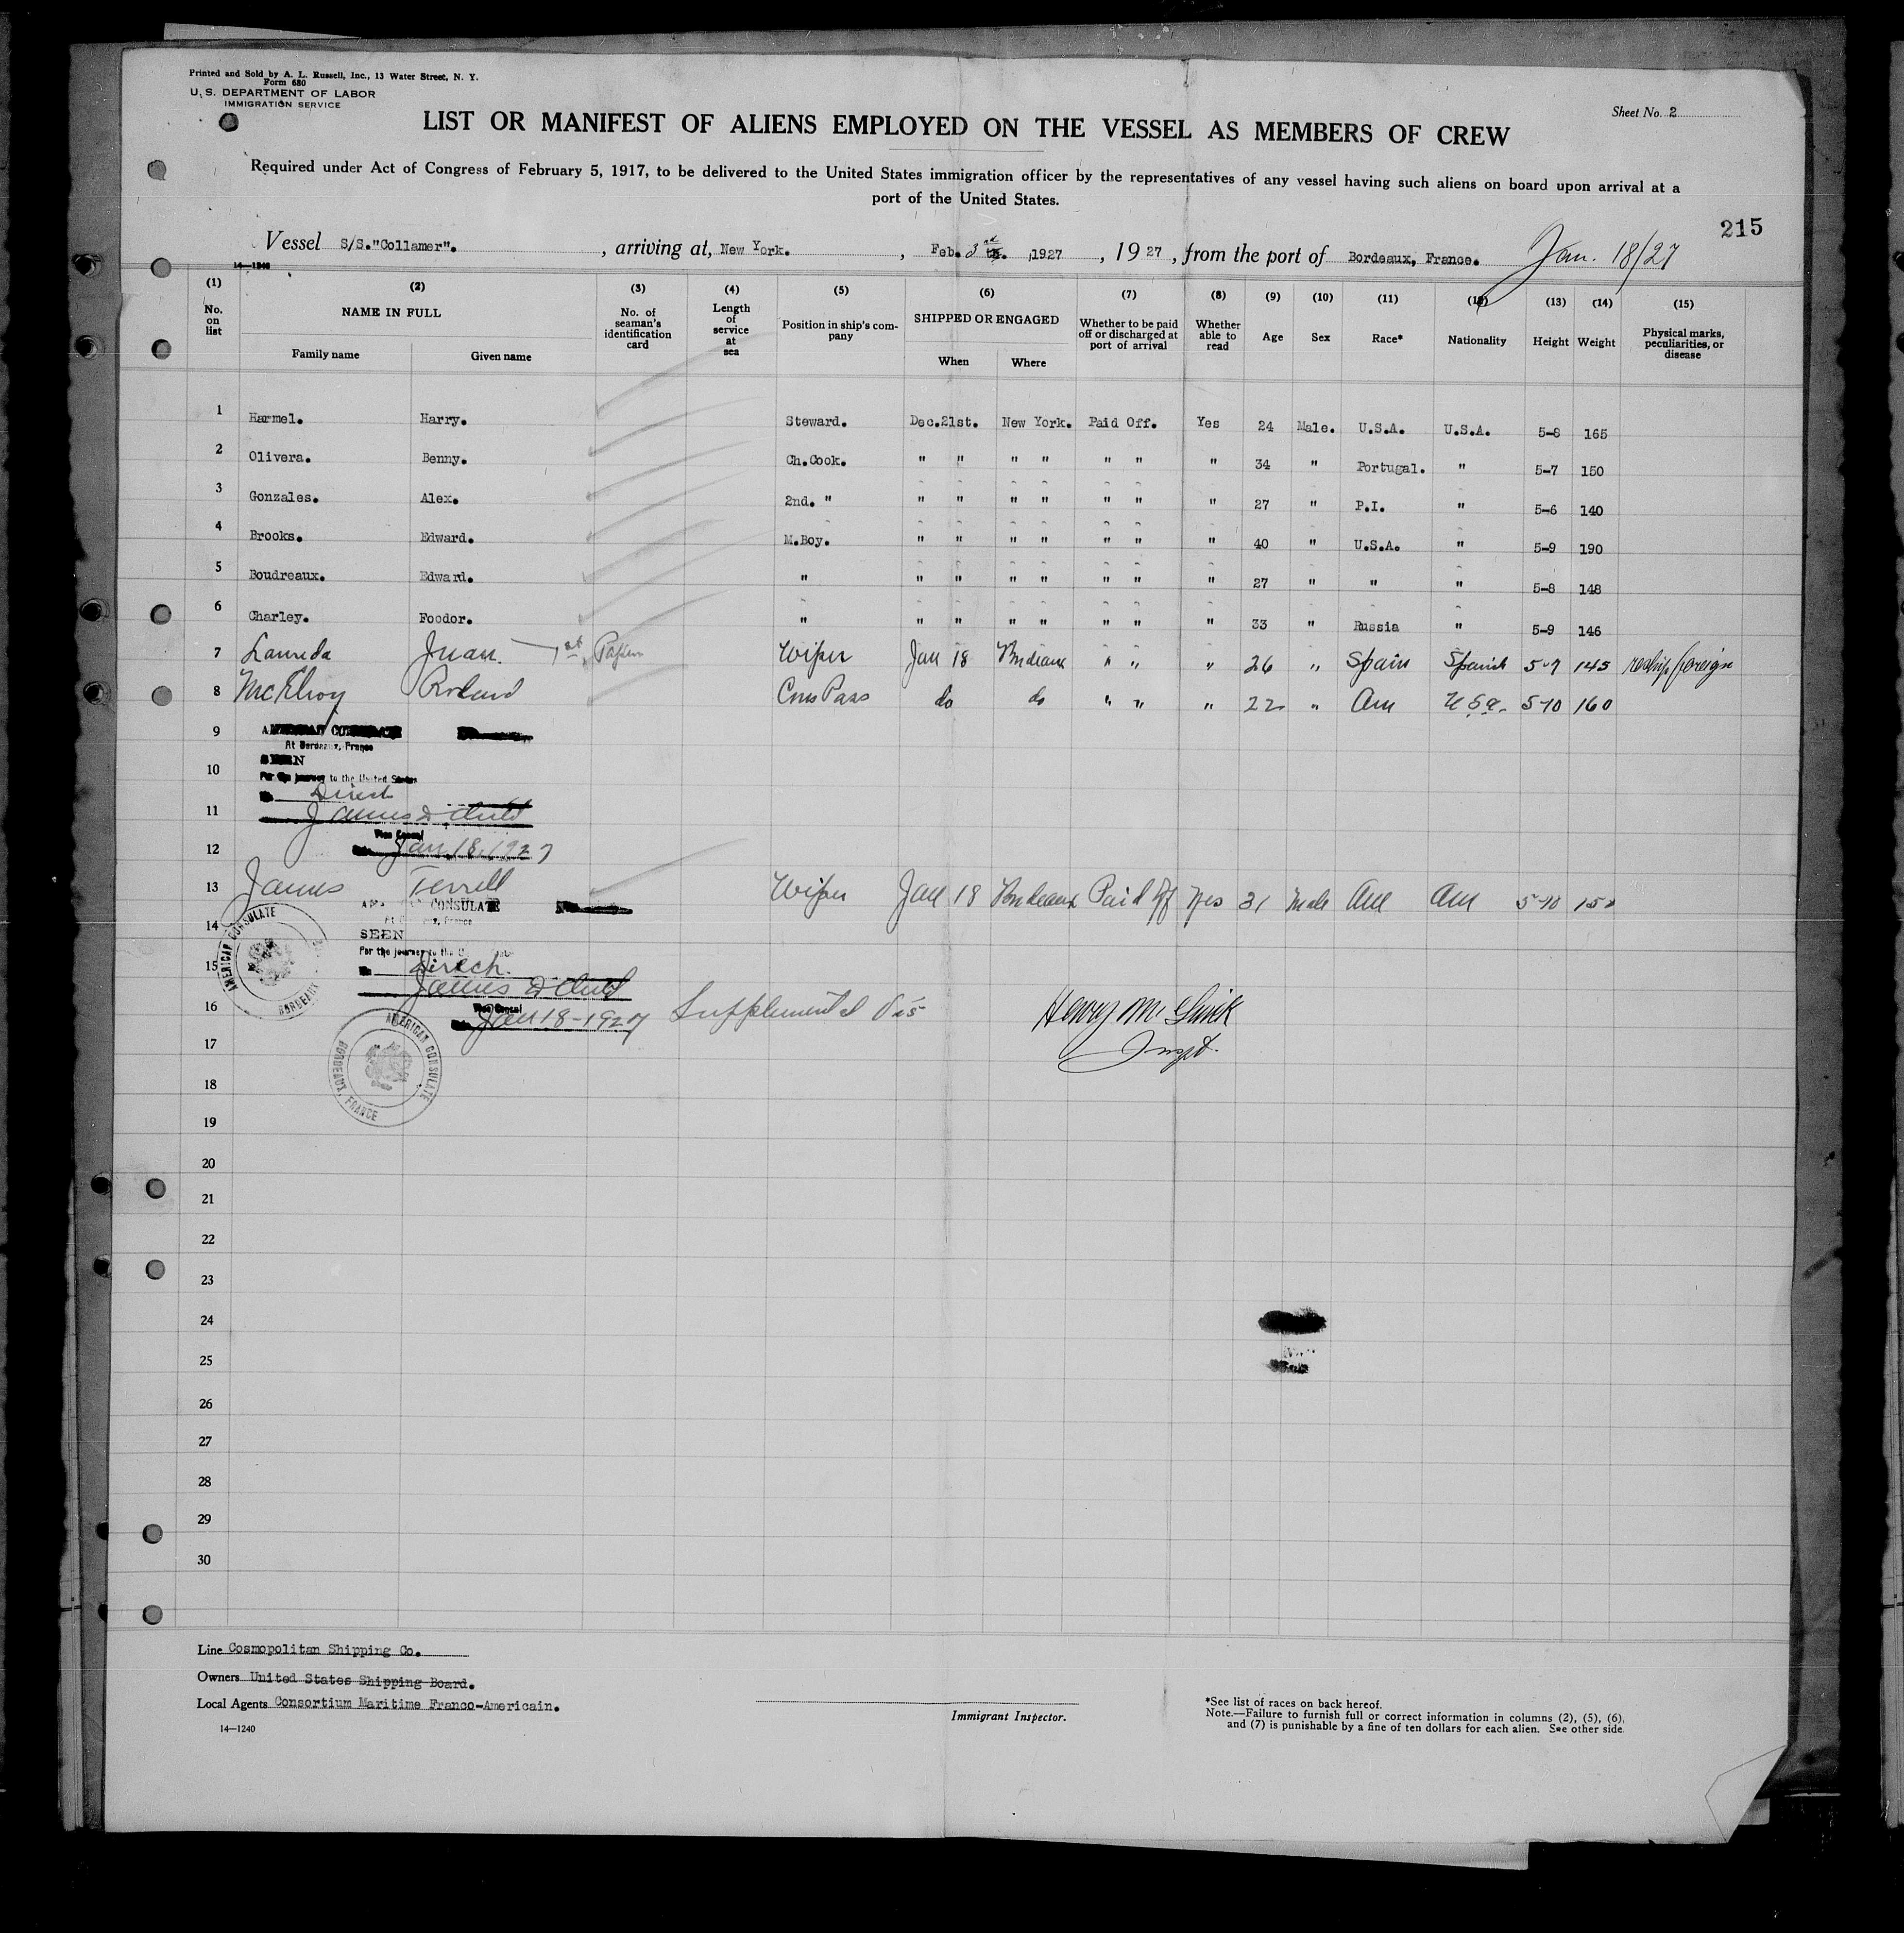 Printed and Sold by A. L. Russell, Inc., 13 Water Street, N. Y.
Form 680
U. S. DEPARTMENT OF LABOR
IMMIGRATION SERVICE
Sheet No. 2
LIST OR MANIFEST OF ALIENS EMPLOYED ON THE VESSEL AS MEMBERS OF CREW
Required under Act of Congress of February 5, 1917, to be delivered to the United States immigration officer by the representatives of any vessel having such aliens on board upon arrival at a
port of the United States.
215
Vessel S/S."Collamer"., arriving at, New York., Feb. 3rd ,1927, 1927, from the port of Bordeaux, France. Jan. 18/27
14—1240
(1) (2) (3) (4) (5) (6) (7) (8) (9) (10) (11) (12) (13) (14) (15)
No. on list NAME IN FULL Family name Given name No. of seaman's identification card Length of service at sea Position in ship's company SHIPPED OR ENGAGED When Where Whether to be paid off or discharged at port of arrival Whether able to read Age Sex Race* Nationality Height Weight Physical marks, peculiarities, or disease
1 Harmel. Harry. Steward. Dec.21st. New York. Paid Off. Yes 24 Male. U.S.A. U.S.A. 5-8 165
2 Olivera. Benny. Ch.Cook. " " " " " " " 34 " Portugal. " 5-7 150
3 Gonzales. Alex. 2nd. " " " " " " " " 27 " P.I. " 5-6 140
4 Brooks. Edward. M.Boy. " " " " " " " 40 " U.S.A. " 5-9 190
5 Boudreaux. Edward. " " " " " " " " 27 " " " 5-8 148
6 Charley. Foodor. " " " " " " " " 33 " Russia " 5-9 146
7 Juan. Wiper Jan 18 Bordeaux " " " 26 " Spain Spanish 5-7 145 reship foreign
8 McElroy Roland Cons Pass do do " " " 22 " Am U.S.A. 5-10 160
9 AMERICAN CONSULATE
At Bordeaux, France
10 SEEN
For the journey to the United States
Direct
11 James
Vice Consul
12 Jan. 18, 1927
13 James Terrell Wiper Jan 18 Bordeaux Paid Off Yes 31 Male Am Am 5-10 150
CONSULATE
14 SEEN
For the journey to the
15 Direct.
James
Vice Consul
16 Jan 18-1927 Supplemental Henry
17 Inspt.
AMERICAN CONSULATE BORDEAUX
AMERICAN CONSULATE BORDEAUX, FRANCE
18
19
20
21
22
23
24
25
26
27
28
29
30
Line Cosmopolitan Shipping Co.
Owners United States Shipping Board.
Local Agents Consortium Maritime Franco-Americain.
14—1240
Immigrant Inspector.
*See list of races on back hereof.
Note.—Failure to furnish full or correct information in columns (2), (5), (6),
and (7) is punishable by a fine of ten dollars for each alien. See other side.